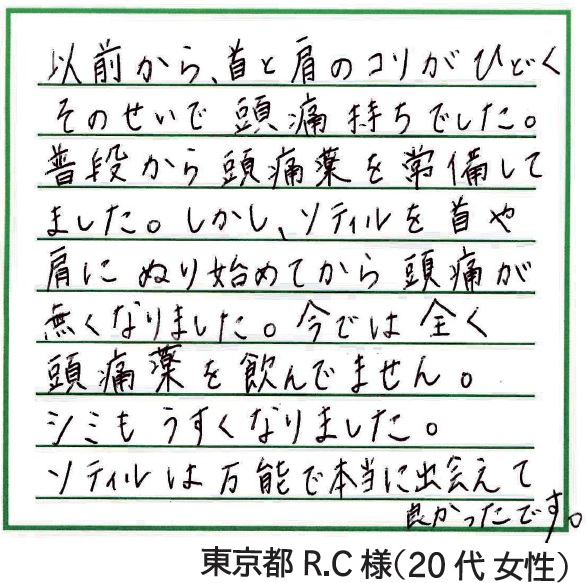 以前から、首と肩のコリがひどく
そのせいで頭痛持ちでした。
普段から頭痛薬を常備して
ました。しかし、ソティルを首や
肩にぬり始めてから頭痛が
無くなりました。今では全く
頭痛薬を飲んでません。
シミもうすくなりました。
ソティルは万能で本当に出会えて
良かったです。
東京都 R.C 様（20 代 女性）